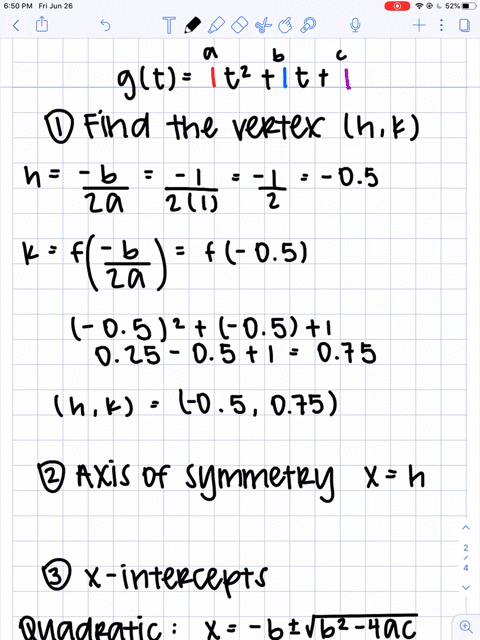 6:50 PM Fri Jun 26
52%
a b c
g(t) = 1t² + 1t + 1
① Find the vertex (h, k)
h = -b/2a = -1/2(1) = -1/2 = -0.5
k = f(-b/2a) = f(-0.5)
(-0.5)² + (-0.5) + 1
0.25 - 0.5 + 1 = 0.75
(h, k) = (-0.5, 0.75)
② Axis of symmetry x = h
③ x-intercepts
2/4
Quadratic: x = -b ± √b² - 4ac